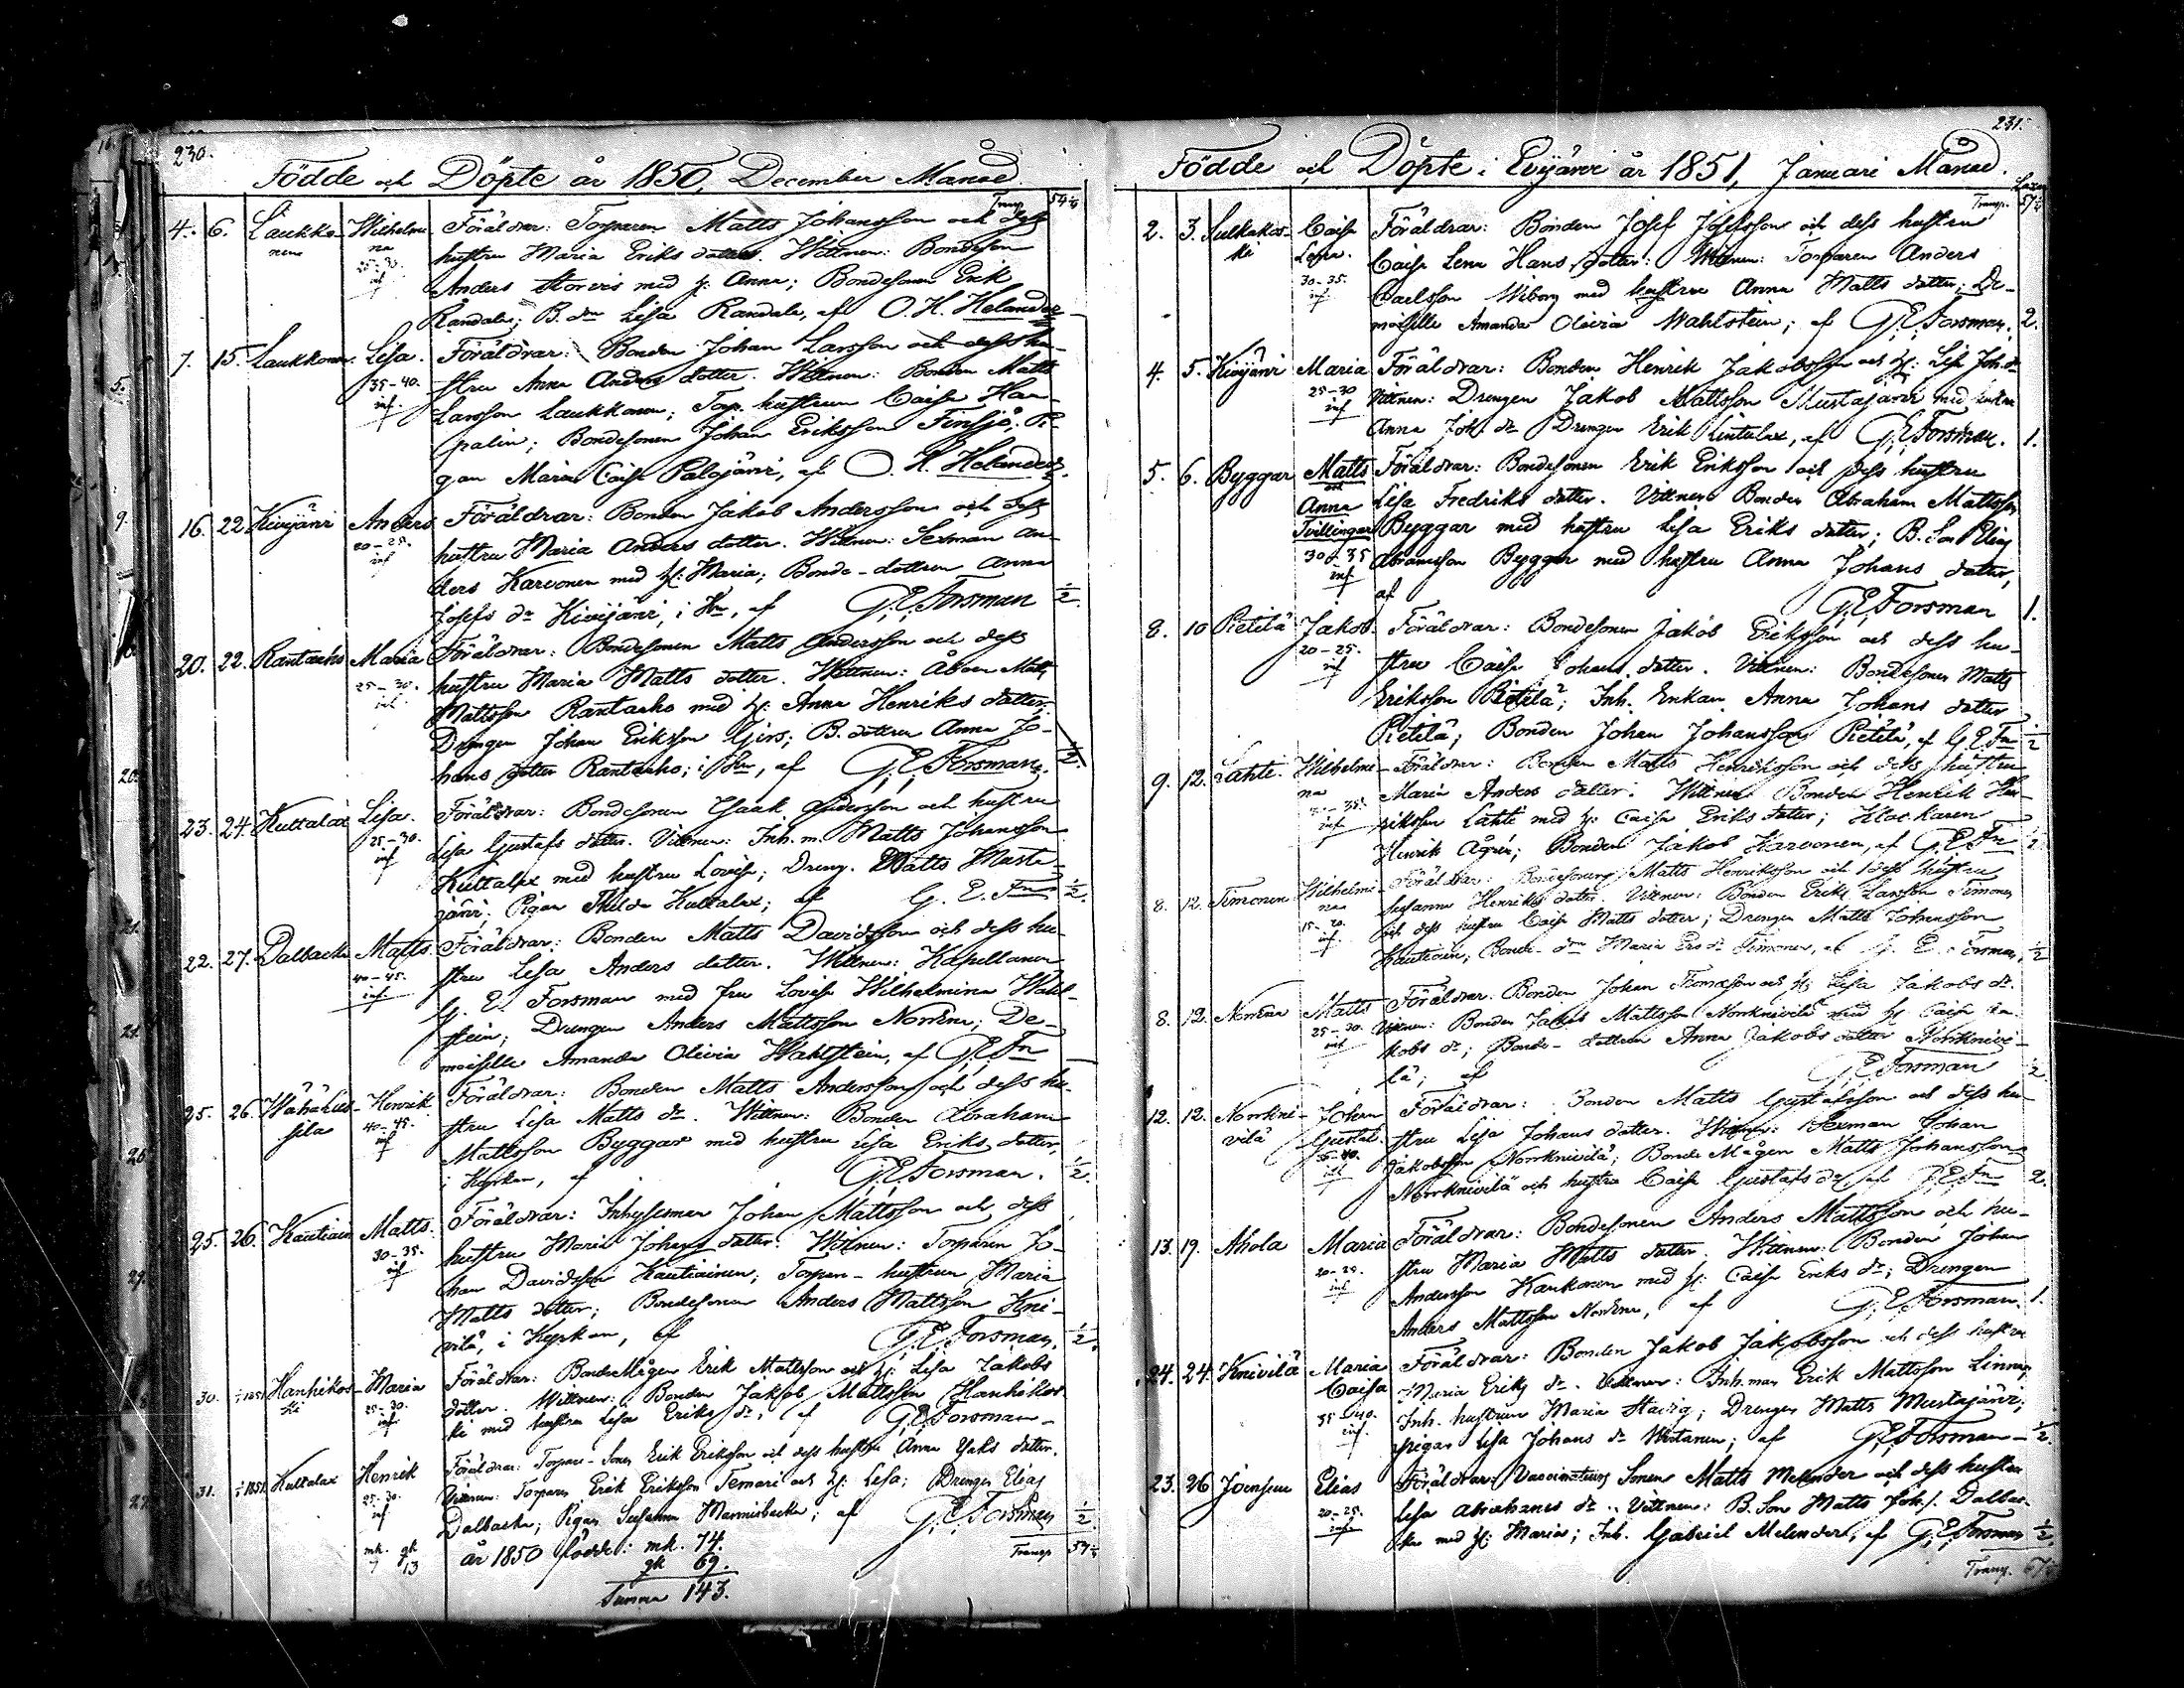 230.
Födde och Döpte år 1850, December Månad
Transp 54¼
4. 6. Laukko- Wilhelmi- Föräldrar: Torparen Matts Johansson och dess
nen na hustru Maria Eriks dotter. Wittnen: Bondeson
25-30. Anders Storvis med h: Anna; Bondesonen Erik
inf Randala; B. dn Lisa Randala, af O. H. Helander
7. 15. Laukkonen Lisa. Föräldrar: Bonden Johan Larsson och dess hu-
35-40. stru Anna Anders dotter. Wittnen: Bonden Matts
inf. Larsson Laukkonen; Torp. hustrun Caisa Haa-
palin; Bondesonen Johan Eriksson Finsjö; Pi-
gan Maria Caisa Palojärvi, af O. H. Helander.
16. 22 Kivijärvi Anders Föräldrar: Bonden Jakob Andersson och dess
20-25. hustru Maria Anders dotter. Wittnen: Sexman An-
inf ders Karvonen med h: Maria; Bonde-dottren Anna
Josefs dr Kivijärvi, i Kn, af G. E. Forsman ½.
20. 22. Rantaaho Maria Föräldrar: Bondesonen Matts Andersson och dess
25-30. hustru Maria Matts dotter. Wittnen: Åboen Matts
inf. Mattsson Rantaaho med h: Anna Henriks dotter;
Drengen Johan Eriksson Girs; B. dottren Anna Jo-
hans dotter Rantaaho; i Kn, af G. E. Forsman. ½.
23. 24. Kultalax Lisa. Föräldrar: Bondesonen Isaak Andersson och hustru
25-30. Lisa Gustafs dotter. Vittnen: Inh. m. Matts Johansson
inf Kultalax med hustru Lovisa; Dreng. Matts Musta-
järvi. Pigan Thilda Kultalax; af G. E. Fn ½.
22. 27. Dalbacka Matts. Föräldrar: Bonden Matts Davidsson och dess hu-
40-45. stru Lisa Anders dotter. Wittnen: Kapellanen
inf. G. E. Forsman med fru Lovisa Wilhelmina Wahl-
stein; Drengen Anders Mattsson Norrena; De-
moiselle Amanda Olivia Wahlstein, af G. E. Fn —
25. 26. Wähäkai- Henrik Föräldrar: Bonden Matts Andersson och dess hu-
40-45. stru Lisa Matts dr. Wittnen: Bonden Abraham
inf Mattsson Byggar med hustru Lisa Eriks dotter,
i Kyrkan, af G. E. Forsman. ½.
25. 26. Kautiain Matts. Föräldrar: Inhysesman Johan Mattsson och dess
30-35. hustru Maria Johans dotter. Wittnen: Torparen Jo-
inf han Davidsson Kautiainen; Torpare-hustrun Maria
Matts dotter; Bondesonen Anders Mattsson Kni-
vilä, i Kyrkan, af G. E. Forsman. ½.
30. 1851 Hanhikos- Maria Föräldrar: BondeMågen Erik Mattsson och h: Lisa Jakobs
ki 25-30. dotter. Wittnen: Bonden Jakob Mattsson Hanhikos-
inf ki med hustru Lisa Eriks dr; af G. E. Forsman —
31. 1851 Kultalax Henrik Föräldrar: Torpare-Sonen Erik Eriksson och dess hustru Anna Isaks dotter.
25-30. Vittnen: Torparen Erik Eriksson Temari och h: Lisa; Drengen Elias
inf. Dalbacka; Pigan Susanna Mannisbacka; af G. E. Forsman ½
mk. qk år 1850 födde: mk. 74. Transp 57¼
7 13 qk 69.
Summa 143.
231.
Födde och Döpte i Evijärvi år 1851, Januari Månad.
Transp. 57¼
2. 3. Sulkakos- Caisa Föräldrar: Bonden Josef Josefsson och dess hustru
ki Lena. Caisa Lena Hans dotter. Wittnen: Torparen Anders
30-35. Carlsson Wiborg med hustru Anna Matts dotter; De-
inf. moiselle Amanda Olivia Wahlstein; af G. E. Forsman. 2.
4. 5. Kivijärvi Maria Föräldrar: Bonden Henrik Jakobsson och h: Lisa Joh. dr
25-30 Vittnen: Drengen Jakob Mattsson Mustajärvi med hustru
inf Anna Joh. dr Drengen Erik Kultalax, af G. E. Forsman. 1.
5. 6. Byggar Matts Föräldrar: Bondesonen Erik Eriksson och dess hustru
och
Anna Lisa Fredriks dotter. Vittnen Bonden Abraham Mattsson
Tvillingar Byggar med hustru Lisa Eriks dotter; B. Son Elias
30-35 Abramsson Byggar med hustru Anna Johans dotter,
inf af G. E. Forsman 1.
8. 10 Pietilä Jakob. Föräldrar: Bondesonen Jakob Eriksson och dess hu-
20-25. stru Caisa Johans dotter. Vittnen: Bondesonen Matts
inf Eriksson Pietilä; Inh. Enkan Anna Johans dotter
Pietilä; Bonden Johan Johansson Pietilä, af G. E. Fn ½
9. 12. Lahti. Wilhelmi- Föräldrar: Bonden Matts Henriksson och dess hustru
na Maria Anders dotter. Wittnen Bonden Henrik Hen-
inf riksson Lahti med h: Caisa Eriks dotter; Klockaren
Henrik Ågren; Bonden Jakob Karvonen, af G. E. Fn ½
8. 12. Timonen Wilhelmi- Föräldrar: Bondesonen Matts Henriksson och dess hustru
na Susanna Henriks dotter. Vittnen: Bonden Erik Larsson Timonen
15-20. och dess hustru Caisa Matts dotter; Drengen Matts Johansson
inf. Kautiainen; Bonde-dn Maria Ers dr Timonen, af G. E. Forsman, ½
8. 12. Norrena Matts Föräldrar. Bonden Johan Thomasson och h: Lisa Jakobs dr.
25-30. Vittnen: Bonden Jakob Mattsson Norrknivilä med h: Caisa Ja-
inf kobs dr; Bonde-dottren Anna Jakobs dotter Norrknivi-
lä; af G. E. Forsman ½.
12. 12. Norrkni- Johan Föräldrar: Bonden Matts Gustafsson och dess hu-
vilä Gustaf. stru Lisa Johans dotter. Wittnen: Sexman Johan
35-40. Jakobsson Norrknivilä; Bonde Mågen Matts Johansson
inf Norrknivilä och hustru Caisa Gustafs dr, af G. E. Fn 2.
13. 19. Ahola Maria Föräldrar: Bondesonen Anders Mattsson och hu-
20-25. stru Maria Matts dotter. Wittnen: Bonden Johan
inf Andersson Kaukonen med h: Caisa Eriks dr; Drengen
Anders Mattsson Norrena, af G. E. Forsman. 1.
24. 24. Knivilä Maria Föräldrar: Bonden Jakob Jakobsson och dess hustru
Caisa Maria Eriks dr. Vittnen: Inh. man Erik Mattsson Linna;
35-40. Inh. hustrun Maria Stavig; Drengen Matts Mustajärvi;
inf. Pigan Lisa Johans dr Wirtanen; af G. E. Forsman — ½.
23. 26 Joensuu Elias Föräldrar: Vaccinateurs Sonen Matts Melender och dess hustru
20-25. Lisa Abrahams dr. Vittnen: B. Son Matts Joh. s. Dalbac-
inf. ka med h: Maria; Inh. Gabriel Melender, af G. E. Forsman ½.
Transp. 67¼